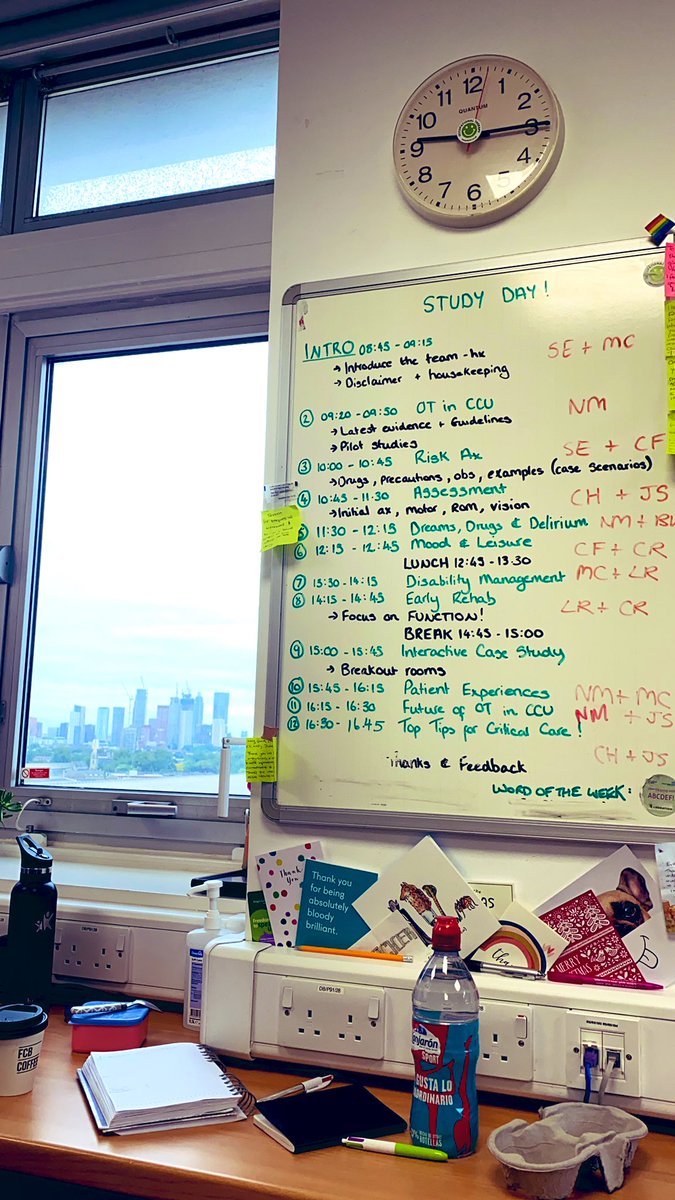 12
1
2
3
4
5
6
7
8
9
10
11
QUANTUM
STUDY DAY!
INTRO 08:45 - 09:15 SE + MC
→ Introduce the team - hx
→ Disclaimer + housekeeping
② 09:20 - 09:50 OT in CCU NM
→ Latest evidence + Guidelines
→ Pilot studies
③ 10:00 - 10:45 Risk Ax SE + CF
→ Drugs, precautions, obs, examples (case scenarios)
④ 10:45 - 11:30 Assessment CH + JS
→ Initial ax, motor, ROM, vision
⑤ 11:30 - 12:15 Dreams, Drugs & Delirium NM +
⑥ 12:15 - 12:45 Mood & Leisure CF + CR
LUNCH 12:45 - 13:30
⑦ 13:30 - 14:15 Disability Management MC + LR
⑧ 14:15 - 14:45 Early Rehab LR + CR
→ Focus on FUNCTION!
BREAK 14:45 - 15:00
⑨ 15:00 - 15:45 Interactive Case Study
→ Breakout rooms
⑩ 15:45 - 16:15 Patient Experiences NM + MC
⑪ 16:15 - 16:30 Future of OT in CCU NM + JS
⑫ 16:30 - 16.45 Top Tips for Critical Care! CH + JS
Thanks & Feedback
WORD OF THE WEEK:
ABCDEF!
Thank You
Thank you
for being
absolutely
bloody
brilliant.
MERRY
FCB
COFFEE
SPORT
GUSTA LO